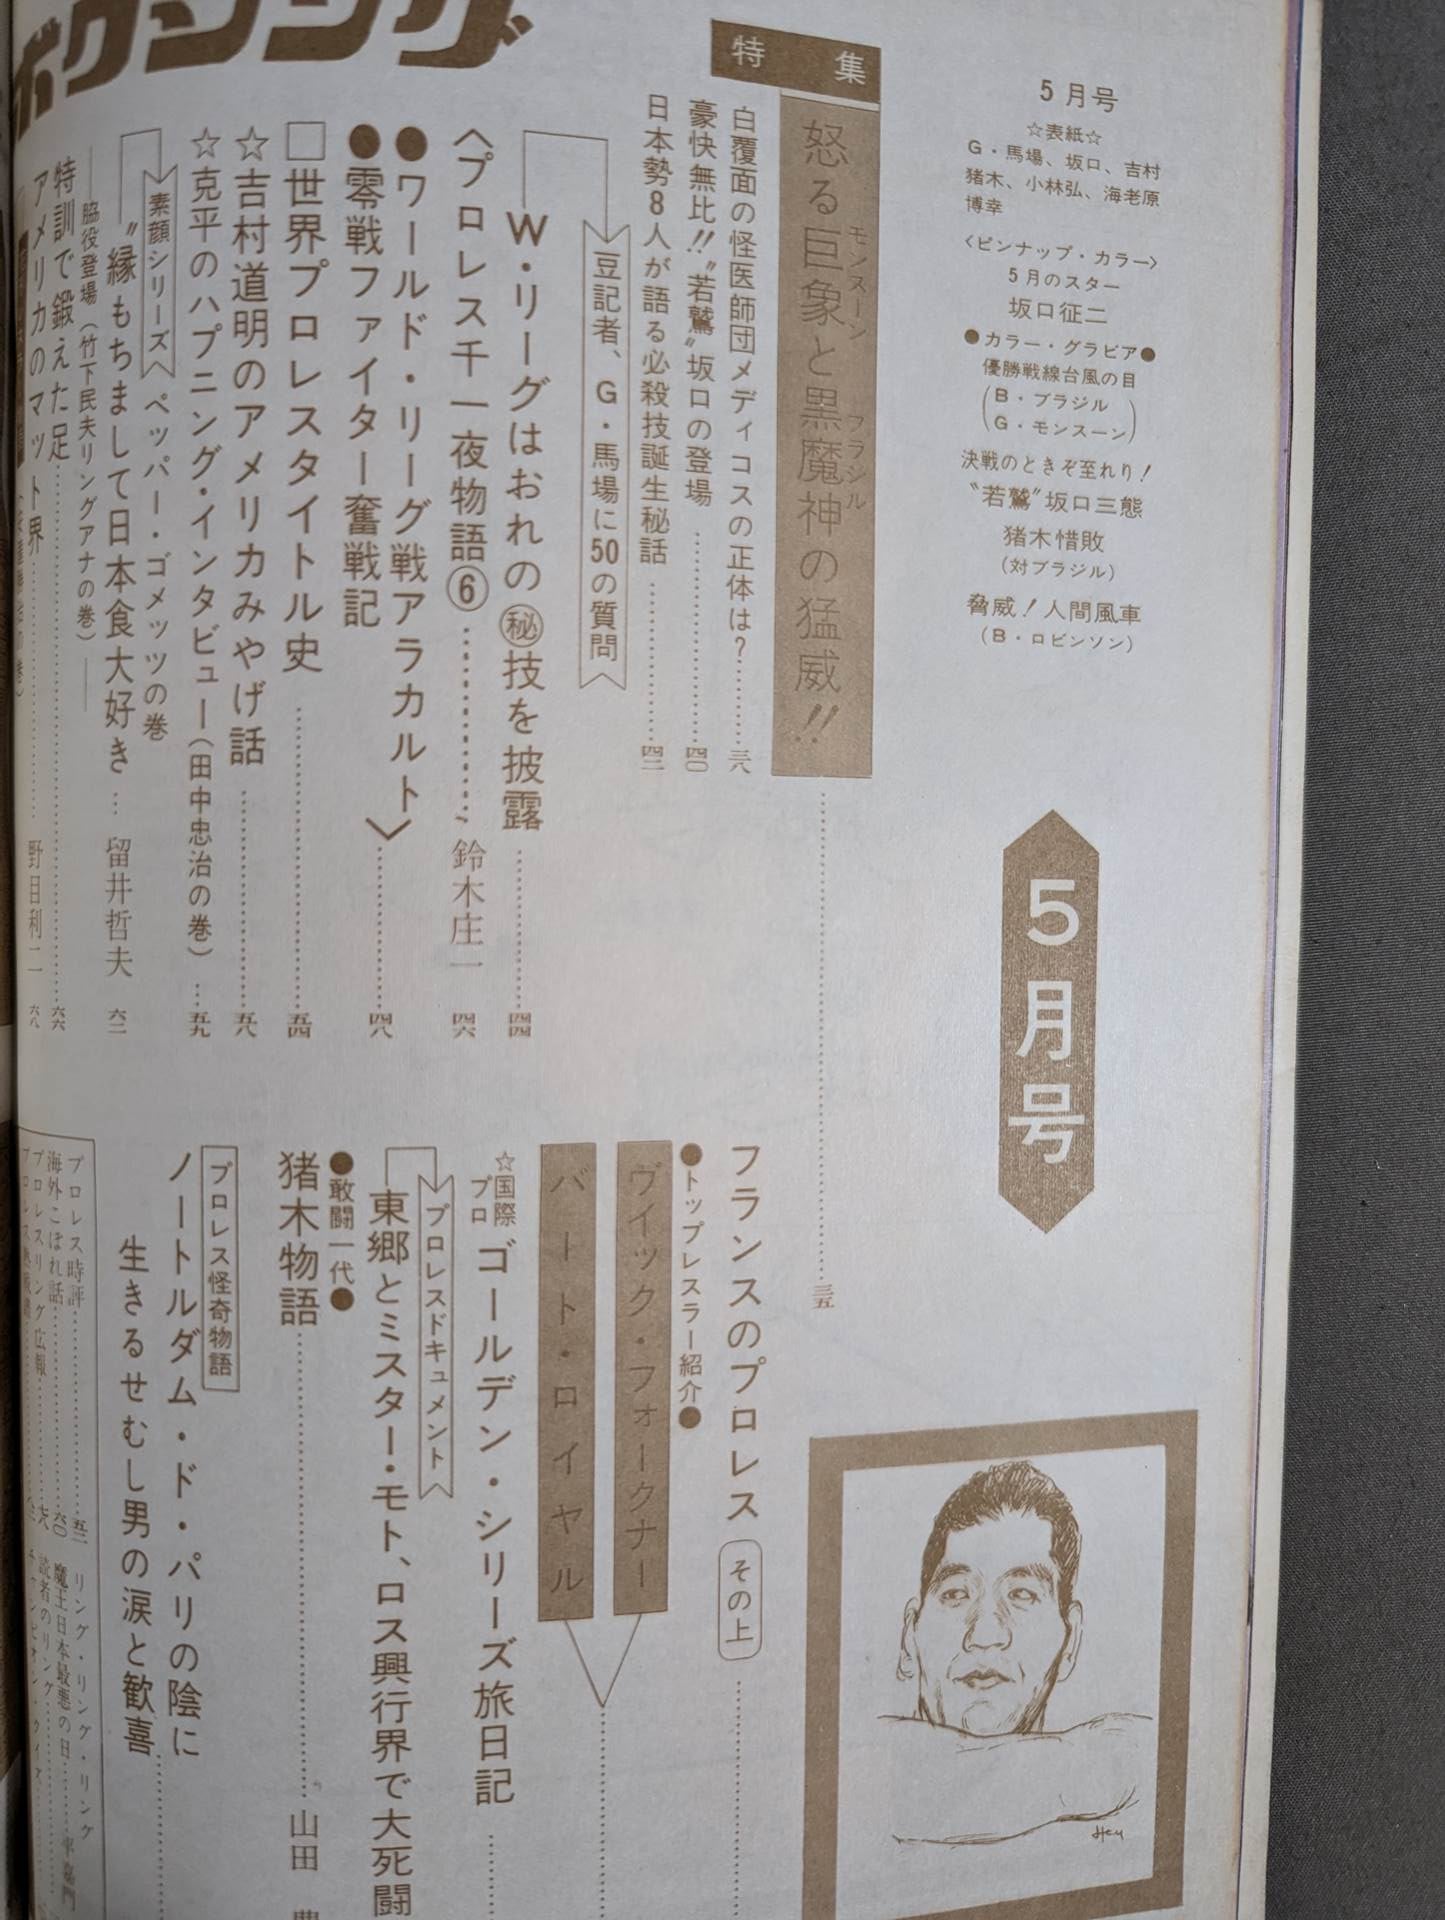 ボクシング
5月号
☆表紙☆
G・馬場、坂口、吉村
猪木、小林弘、海老原
博幸
<ピンナップ・カラー>
5月のスター
坂口征二
●カラー・グラビア●
優勝戦線台風の目
(B・ブラジル
G・モンスーン)
決戦のときぞ至れり!
〝若鷲〟坂口三態
猪木惜敗
(対ブラジル)
脅威!人間風車
(B・ロビンソン)
5月号
特集
怒る巨象と黒魔神の猛威!!……三五
モンスーン
ブラジル
白覆面の怪医師団メディコスの正体は?……三八
豪快無比!!〝若鷲〟坂口の登場……四〇
日本勢8人が語る必殺技誕生秘話……四二
豆記者、G・馬場に50の質問
W・リーグはおれの㊙技を披露……四四
<プロレス千一夜物語⑥……鈴木庄一 四六
●ワールド・リーグ戦アラカルト>
●零戦ファイター奮戦記……四八
□世界プロレスタイトル史……五四
☆吉村道明のアメリカみやげ話……五八
☆克平のハプニング・インタビュー(田中忠治の巻)…五九
素顔シリーズ ペッパー・ゴメッツの巻
〝縁もちまして日本食大好き…留井哲夫 六二
脇役登場(竹下民夫リングアナの巻)
特訓で鍛えた足……六六
アメリカのマット界……野目利二 六八
フランスのプロレス その上
●トップレスラー紹介●
ヴイック・フォークナー
バート・ロイヤル
☆国際プロ ゴールデン・シリーズ旅日記
プロレスドキュメント
東郷とミスター・モト、ロス興行界で大死闘
●敢闘一代●
猪木物語……山田
プロレス怪奇物語
ノートルダム・ド・パリの陰に
生きるせむし男の涙と歓喜
プロレス時評……五三
海外こぼれ話……六〇
プロレスリング広報
リング・リング・リング
魔王日本最悪の日
読者のリング
Hey